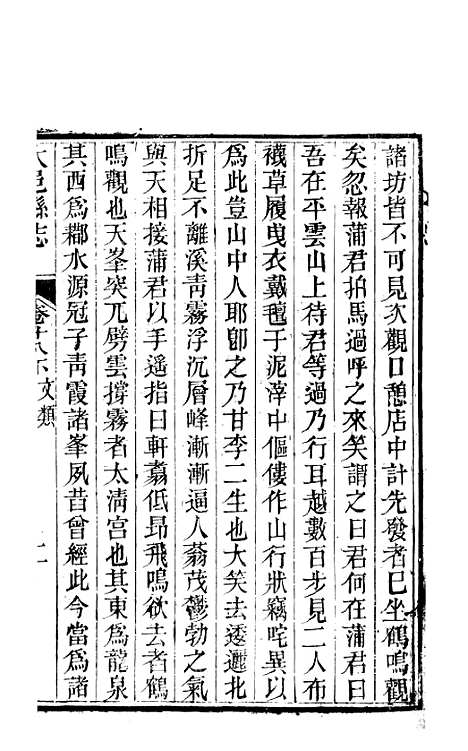 諸坊皆不可見次觀口憩店中計先發者已坐鶴鳴觀
矣忽報蒲君拍馬過呼之來笑謂之曰君何在蒲君曰
吾在平雲山上待君等過乃行耳越數百步見二人布
襪草履曳衣戴氊子泥滓中傴僂作山行狀竊咤異以
為此豈山中人耶卽之乃甘李二生也大笑去逶邐北
折足不離溪靑霧浮沉層峰漸漸逼人蓊茂鬱勃之氣
與天相接蒲君以手遙指曰軒翥低昂飛鳴欲去者鶴
鳴觀也天峯突兀劈雲撐霧者太淸宮也其東為龍泉
其西為䣝水源冠子靑霞諸峯夙昔曾經此今當為諸
大邑縣志 卷十八下文類